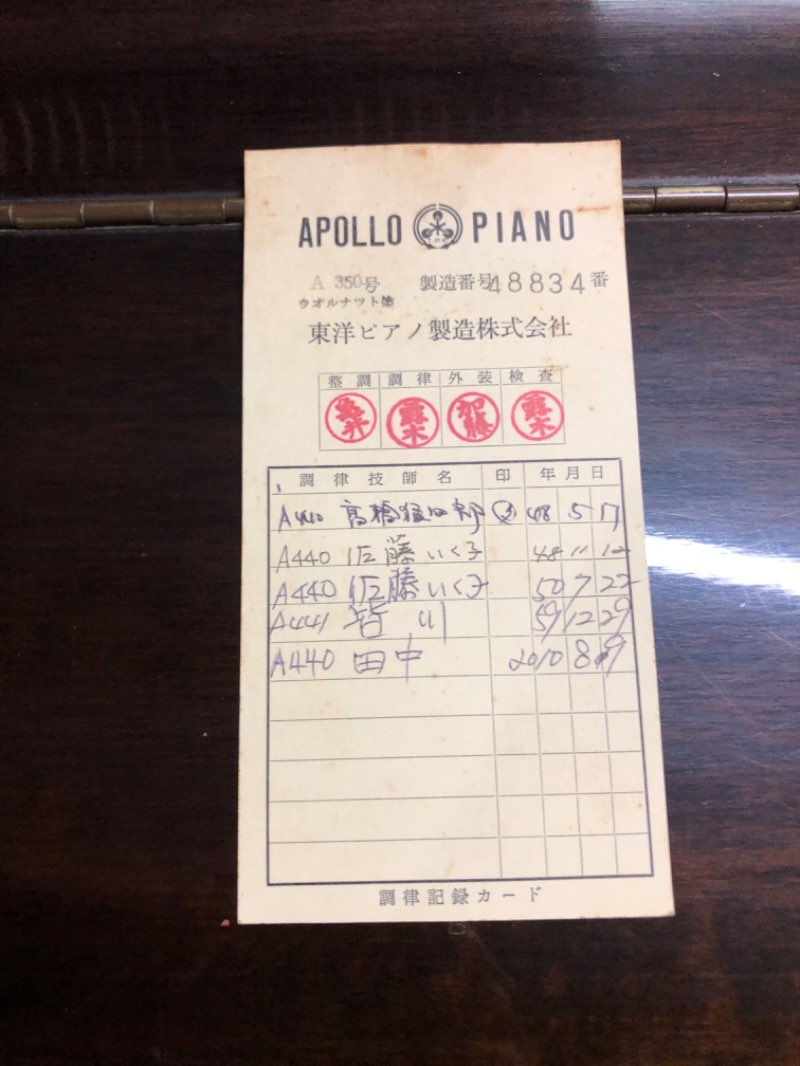 APOLLO PIANO
A 350号 製造番号48834番
ウオルナット塗
東洋ピアノ製造株式会社
整調 調律 外装 検査
亀井 露木 加藤 露木
調律技師名 印 年月日
A440 高橋 郎 48 5 17
A440 佐藤いく子 48 11 12
A440 佐藤いく子 50 7 22
A441 皆川 59 12 29
A440 田中 2010 8 9
調律記録カード